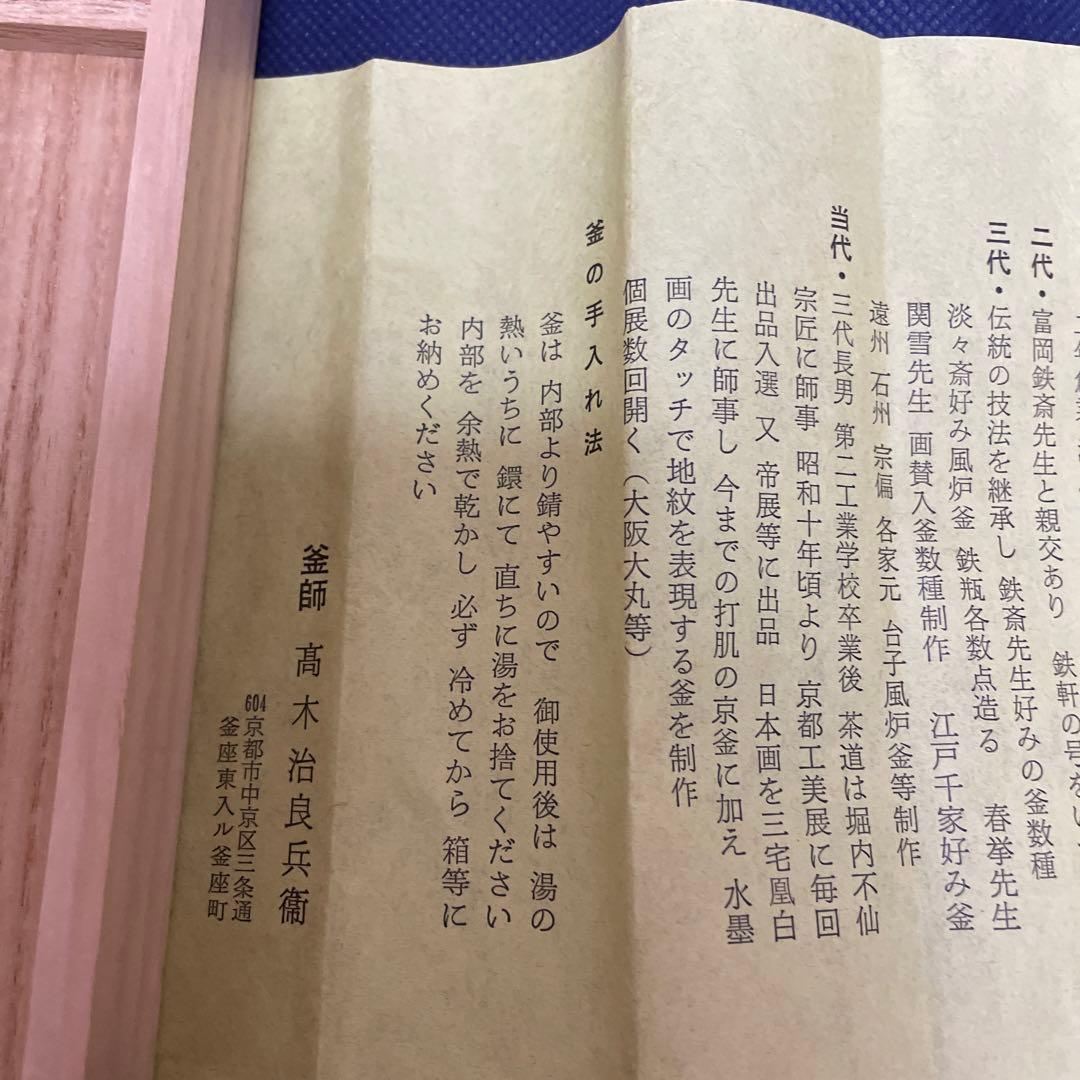 二代・富岡鉄斎先生と親交あり 鉄軒の号を
三代・伝統の技法を継承し 鉄斎先生好みの釜数種
淡々斎好み風炉釜 鉄瓶各数点造る 春挙先生
関雪先生 画賛入釜数種制作 江戸千家好み釜
遠州 石州 宗偏 各家元 台子風炉釜等制作
当代・三代長男 第二工業学校卒業後 茶道は堀内不仙
宗匠に師事 昭和十年頃より 京都工美展に毎回
出品入選 又 帝展等に出品 日本画を三宅凰白
先生に師事し 今までの打肌の京釜に加え 水墨
画のタッチで地紋を表現する釜を制作
個展数回開く（大阪大丸等）
釜の手入れ法
釜は 内部より錆やすいので 御使用後は 湯の
熱いうちに 鐶にて 直ちに湯をお捨てください
内部を 余熱で乾かし 必ず 冷めてから 箱等に
お納めください
釜師 髙木治良兵衞
604京都市中京区三条通
釜座東入ル釜座町